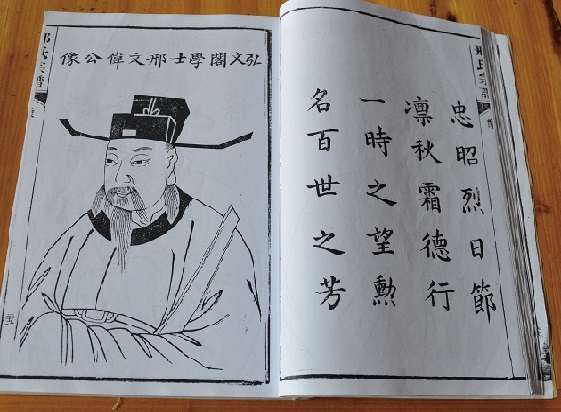 忠昭烈日節
凛秋霜德行
一時之望勲
名百世之芳
弘文閣學士邢文偉公像